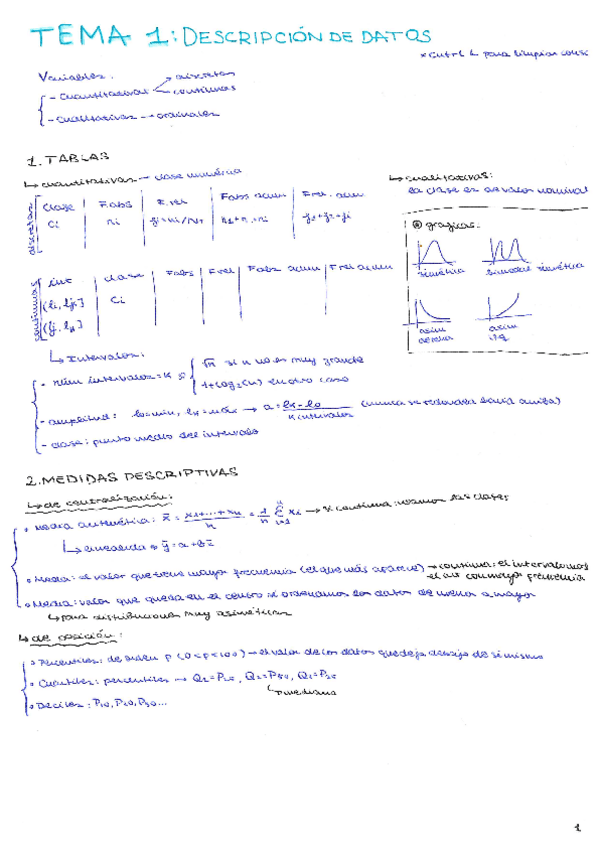 TEMA 1: DESCRIPCIÓN DE DATOS
* Cntrl L para limpiar
Variables:
- Cuantitativas discretas
continuas
- Cualitativas → ordinales
1. TABLAS
↳ cuantitativas → clase numérica
↳ cualitativas:
la clase es de valor nominal
discretas
clase | F abs | F. rel | F abs acum | F rel. acum
Ci | ni | fi = ni/N
continuas
int | clase | F abs | F rel | F abs acum | F rel acum
Ci
gráficas:
simétrica bimodal simétrica
asim derecha asim izq
↳ Intervalos:
- núm intervalos = K √n si n no es muy grande
1 + log₂(n) en otro caso
- amplitud: l₀ = min, lₖ = máx → a = lₖ - l₀ / K intervalos (nunca se redondea hacia arriba)
- clase: punto medio del intervalo
2. MEDIDAS DESCRIPTIVAS
↳ de centralización:
• Media aritmética: x̄ = x₁+...+xₙ / n = 1/n Σ xᵢ → x continua: usamos las clases
↳ ȳ = a + bx̄
• Moda: el valor que tiene mayor frecuencia (el que más aparece) → continua: el intervalo
el con mayor frecuencia
• Media: valor que queda en el centro si ordenamos los datos de menor a mayor
↳ para distribuciones muy asimétricas
↳ de posición:
• Percentiles: de orden p (0<p<100) → el valor de los datos que deja debajo de si mismo
• Cuartiles: percentiles →
mediana
• Deciles: P₁₀, P₂₀, P₃₀...
1